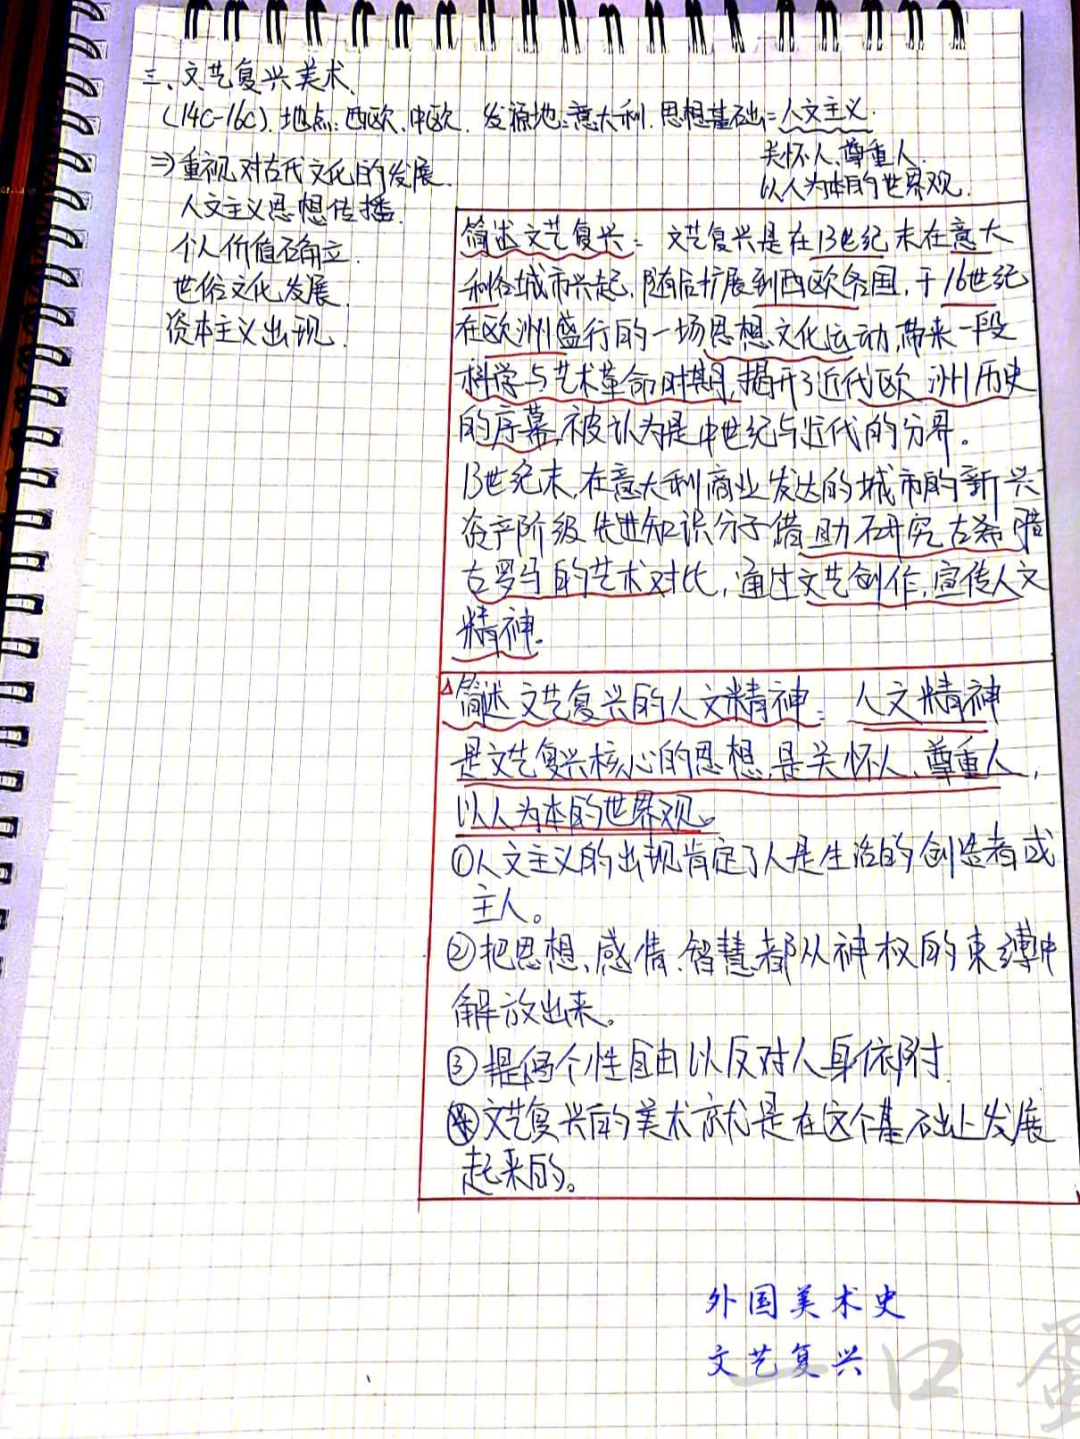 三、文艺复兴美术、
(14C-16C). 地点: 西欧、中欧. 发源地: 意大利. 思想基础: 人文主义.
关怀人、尊重人.
以人为本的世界观.
⇒重视对古代文化的发展.
人文主义思想传播.
个人价值石角立.
世俗文化发展.
资本主义出现.
简述文艺复兴: 文艺复兴是在13世纪末在意大
利各城市兴起, 随后扩展到西欧各国, 于16世纪
在欧洲盛行的一场思想文化运动, 带来一段
科学与艺术革命时期, 揭开了近代欧洲历史
的序幕, 被认为是中世纪与近代的分界。
13世纪末, 在意大利商业发达的城市的新兴
资产阶级先进知识分子借助研究古希腊
古罗马的艺术对比, 通过文艺创作, 宣传人文
精神.
△简述文艺复兴的人文精神: 人文精神
是文艺复兴核心的思想, 是关怀人、尊重人,
以人为本的世界观。
①人文主义的出现肯定了人是生活的创造者或
主人。
②把思想、感情、智慧都从神权的束缚中
解放出来。
③提倡个性自由以反对人身依附.
④文艺复兴后的美术就是在这个基础上发展
起来的。
外国美术史
文艺复兴
一口蛋